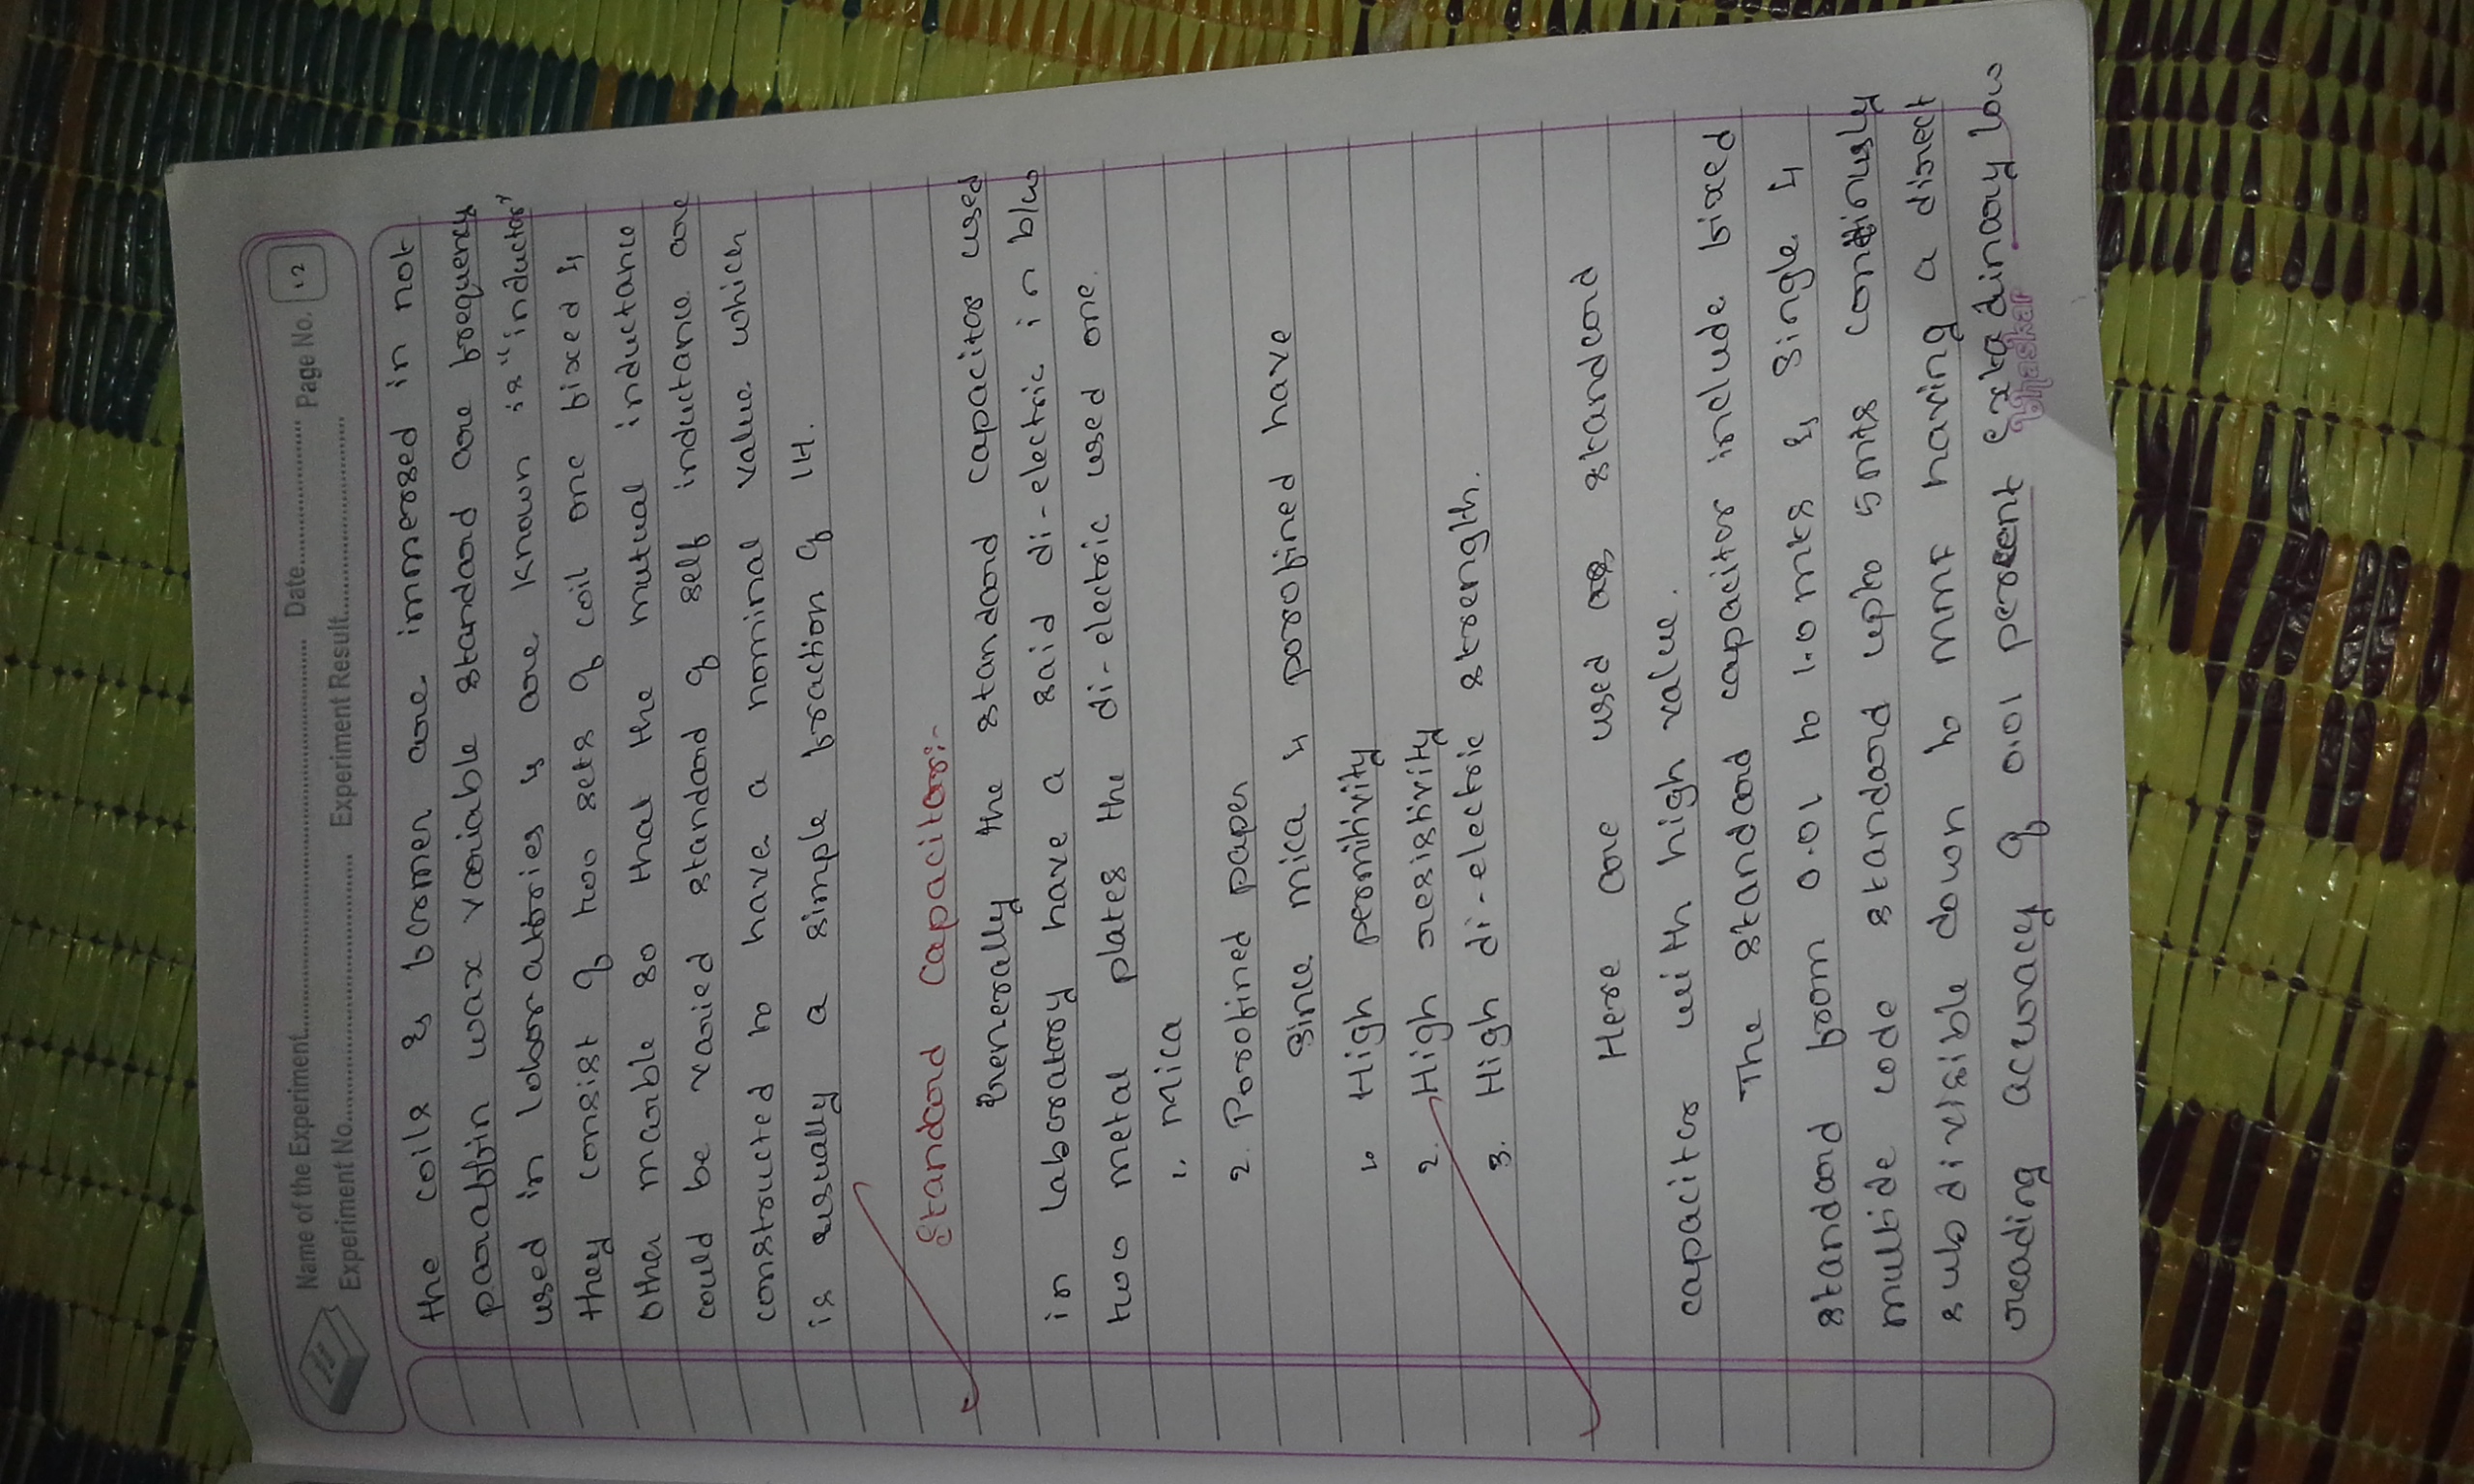 Name of the Experiment............ Date............ Page No. 12
Experiment No............ Experiment Result............
the coils & former are immersed in hot
paraffin wax variable standard are frequency
used in laboratories & are known is "inductor"
they consist of two sets of coil one fixed &
other movable so that the mutual inductance
could be varied standard of self inductance are
constructed to have a nominal value which
is usually a simple fraction of 1H.
Standard Capacitor:-
Generally the standard capacitor used
in laboratory have a said di-electric in b/w
two metal plates the di-electric used one.
1. Mica
2. Parafined paper
Since mica & parafined have
1. High permitivity
2. High resistivity
3. High di-electric strength.
Here are used as standard
capacitor with high value.
The standard capacitor include fixed
standard from 0.01 to 1.0 mfs & single &
multide code standard upto 5 mfs continusly
sub divisible down to mmf having a direct
reading accuracy of 0.01 percent Exta dinary low
bhaskar